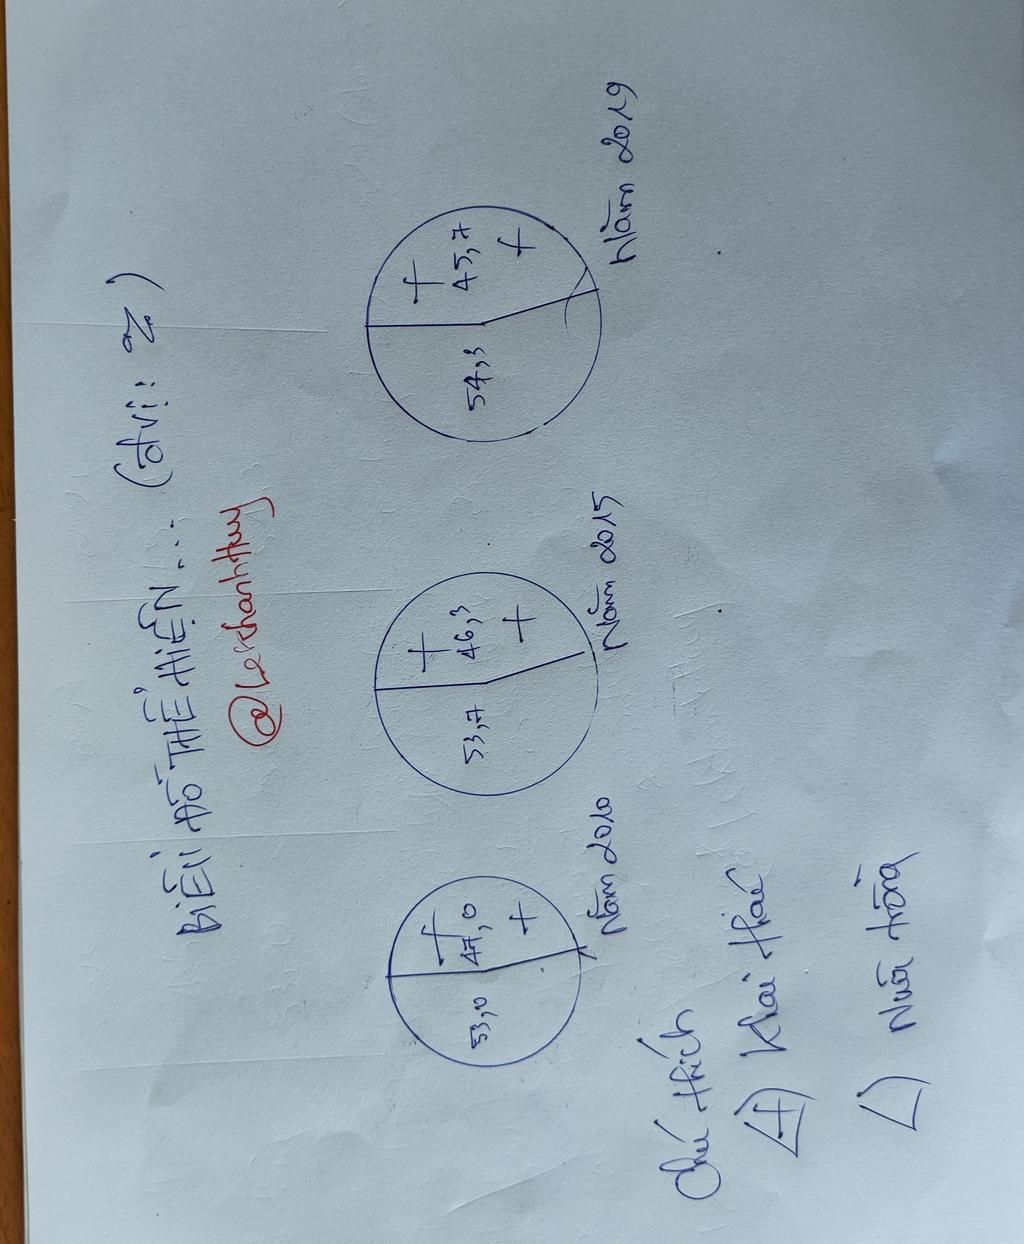 BIỂU ĐỒ THỂ HIỆN... (đvị: %)
@Lekhanhhuy
53,0
47,0
Năm 2010
53,7
46,3
Năm 2015
54,3
45,7
Năm 2019
Chú thích
+ Khai thác
Nuôi trồng